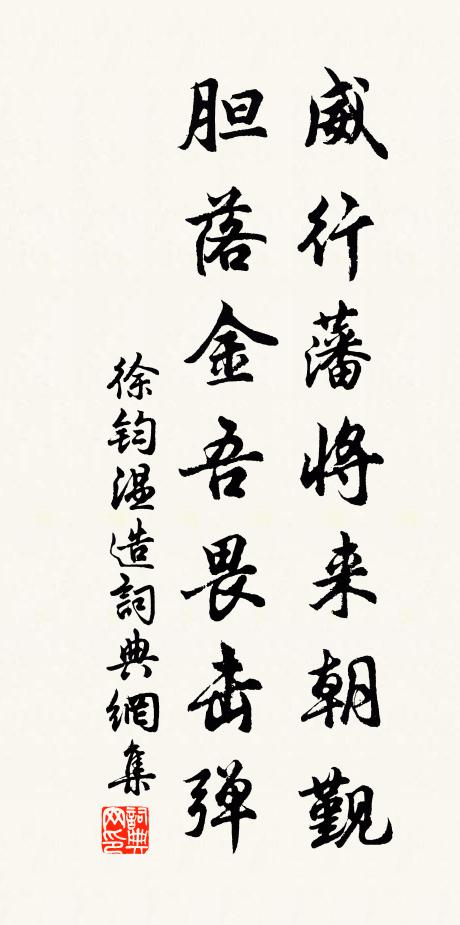 威行藩將来朝觐
胆落金吾畏击弹
徐钧温造詞典網集
詞典网印